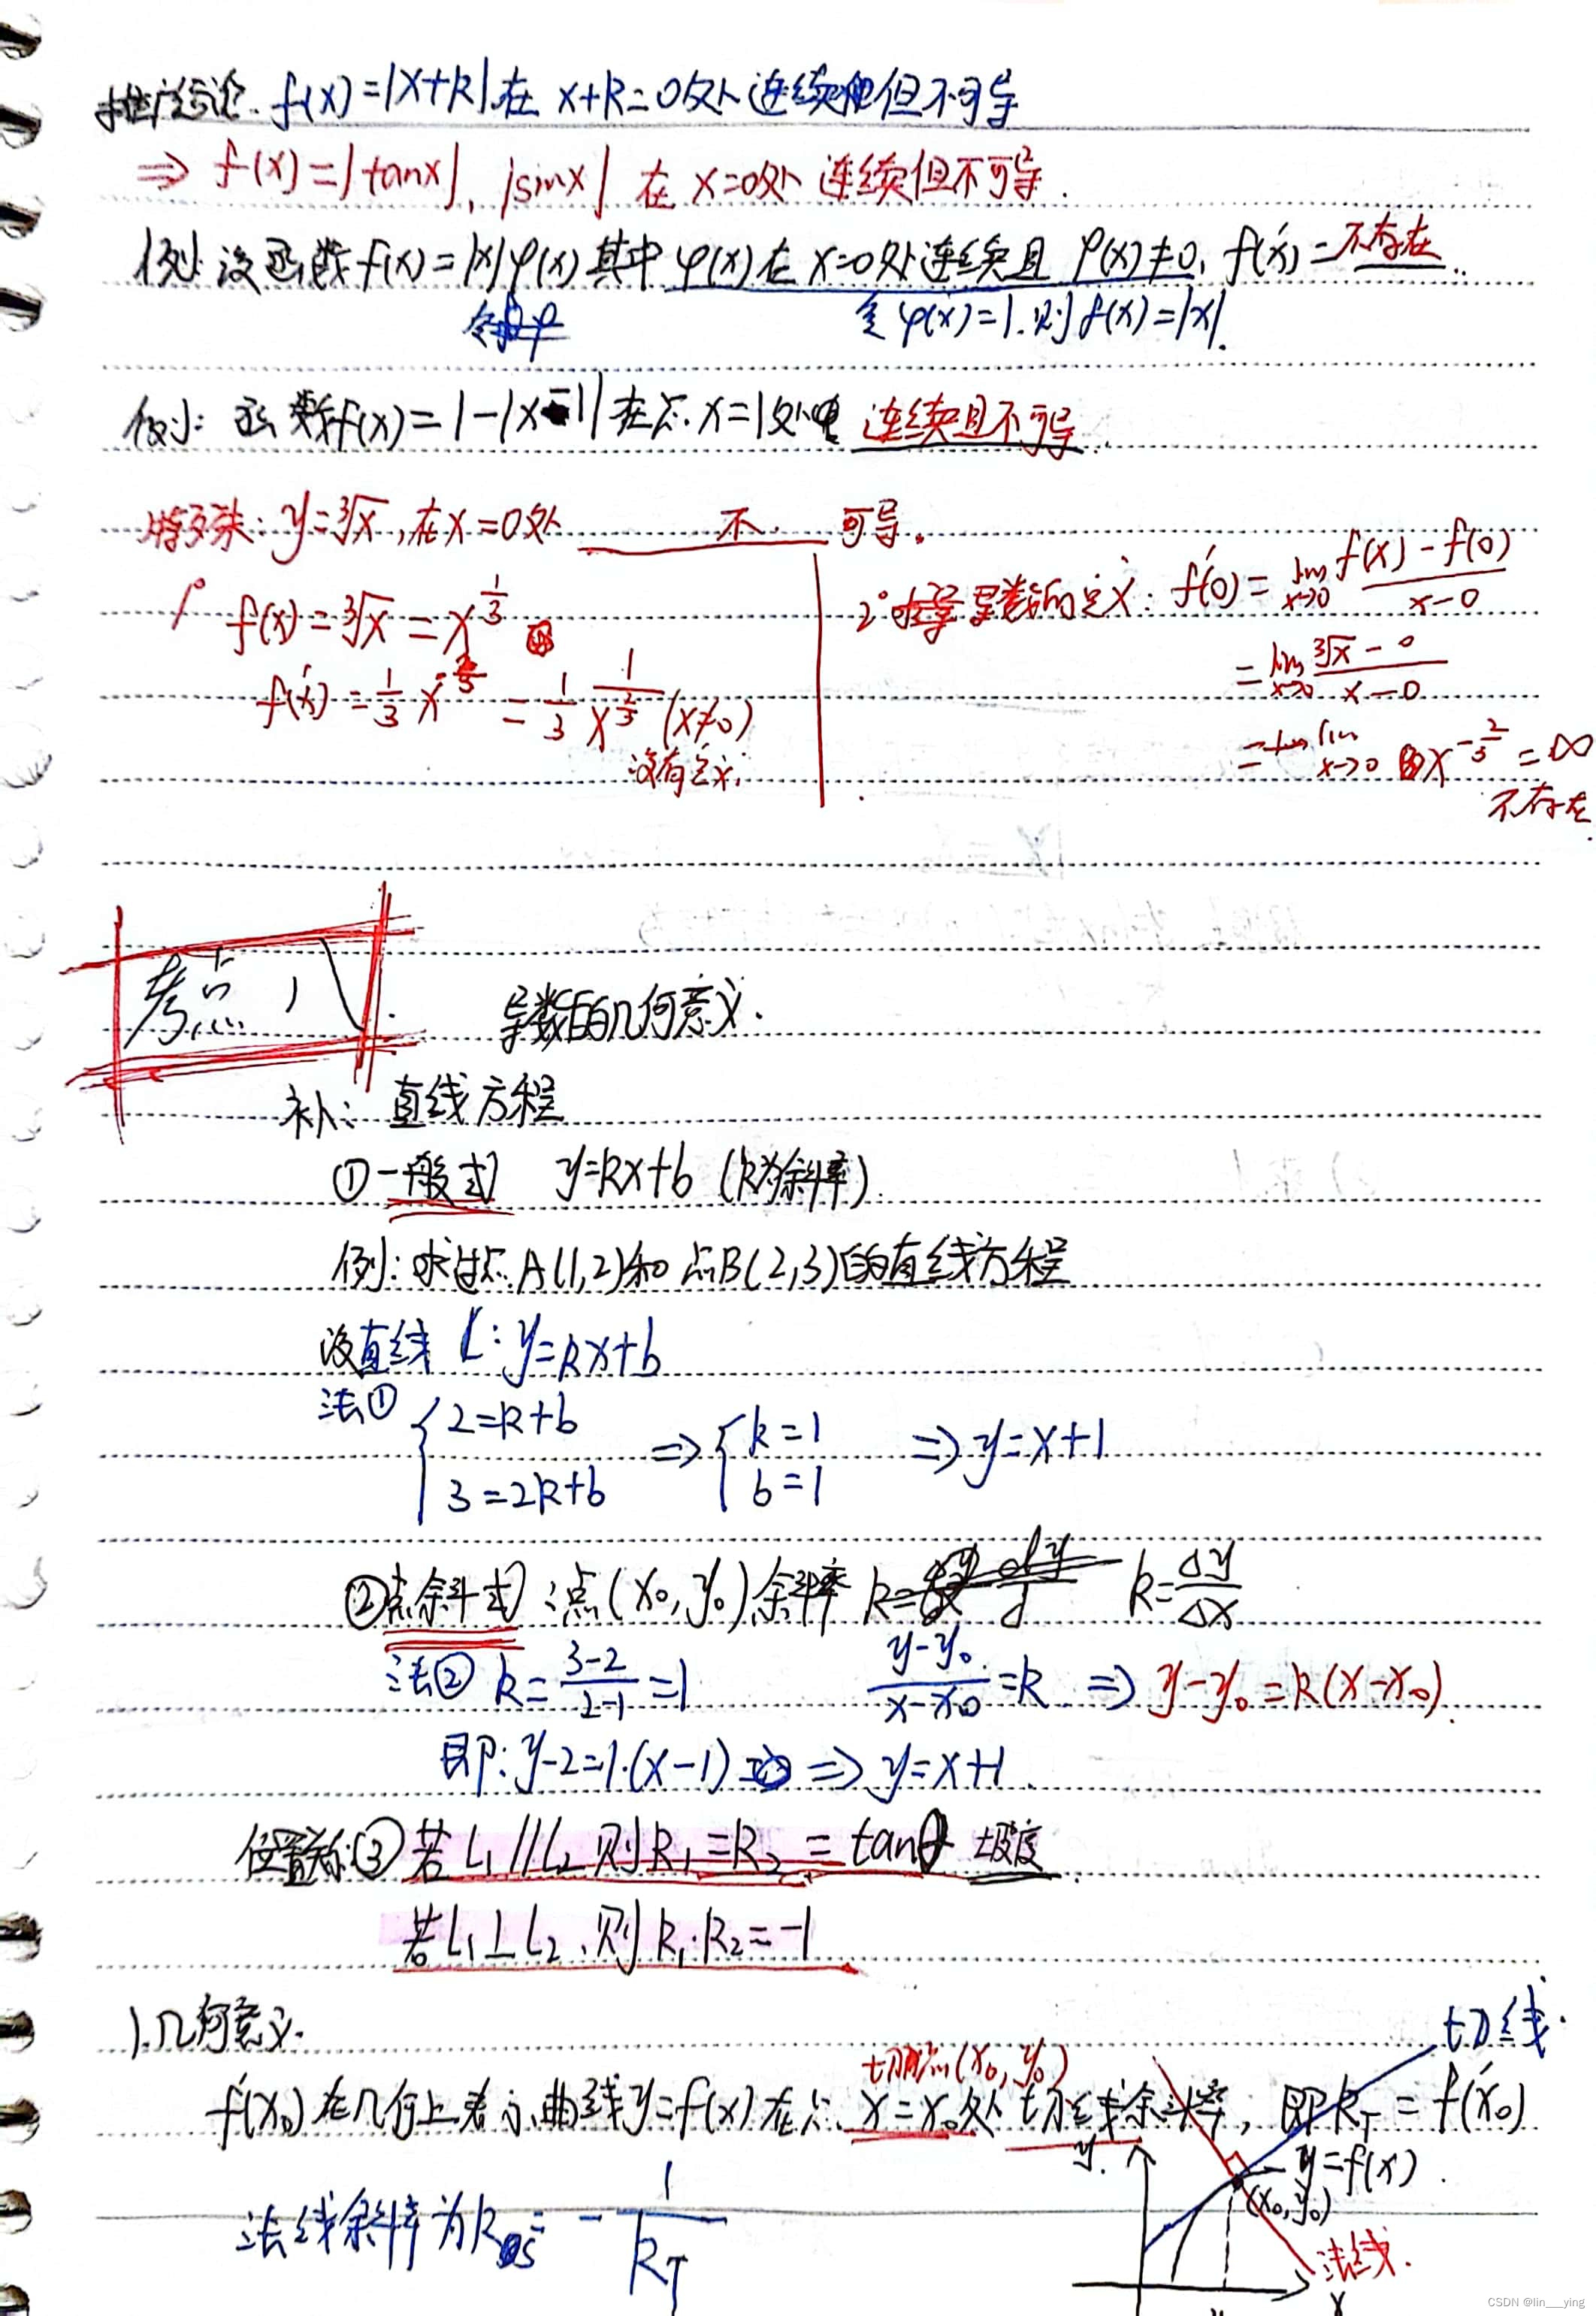 推广结论. f(x)=|x+k|在 x+k=0处连续但不可导
⇒ f(x)=|tanx|, |sinx| 在 x=0处连续但不可导.
例: 设函数f(x)=|x|φ(x)其中φ(x)在x=0处连续且φ(x)≠0, f'(x)=不存在.
令φ(x)=1.则f(x)=|x|.
例: 函数f(x)=1-|x-1|在点x=1处 连续且不可导.
特殊: y=∛x,在x=0处 不 可导.
1° f(x)=∛x=x^{1/3}
f'(x)=1/3 x^{-2/3}=1/3 1/x^{2/3} (x≠0)
没有定义.
2° 导数的定义: f'(0)=lim_{x→0} (f(x)-f(0))/(x-0)
=lim_{x→0} (∛x-0)/(x-0)
=lim_{x→0} x^{-2/3}=∞
不存在.
考点 八
导数的几何意义.
补: 直线方程
①一般式 y=kx+b (k为斜率)
例: 求过点A(1,2)和点B(2,3)的直线方程
设直线 L: y=kx+b
法① {2=k+b 3=2k+b ⇒ {k=1 b=1 ⇒ y=x+1
②点斜式:点(x₀,y₀)斜率 k=Δy/Δx
法② k=(3-2)/(2-1)=1 (y-y₀)/(x-x₀)=k ⇒ y-y₀=k(x-x₀).
即: y-2=1·(x-1) ⇒ y=x+1.
位置关系③ 若L₁//L₂则k₁=k₂=tanθ 坡度.
若L₁⊥L₂,则k₁·k₂=-1
1.几何意义.
切线.
切点(x₀,y₀)
f'(x₀)在几何上表示曲线y=f(x)在点x=x₀处切线斜率, 即k_T=f'(x₀)
y.
y=f(x).
(x₀,y₀)
法线斜率为k = -1/k_T
法线.
x
CSDN @lin___ying